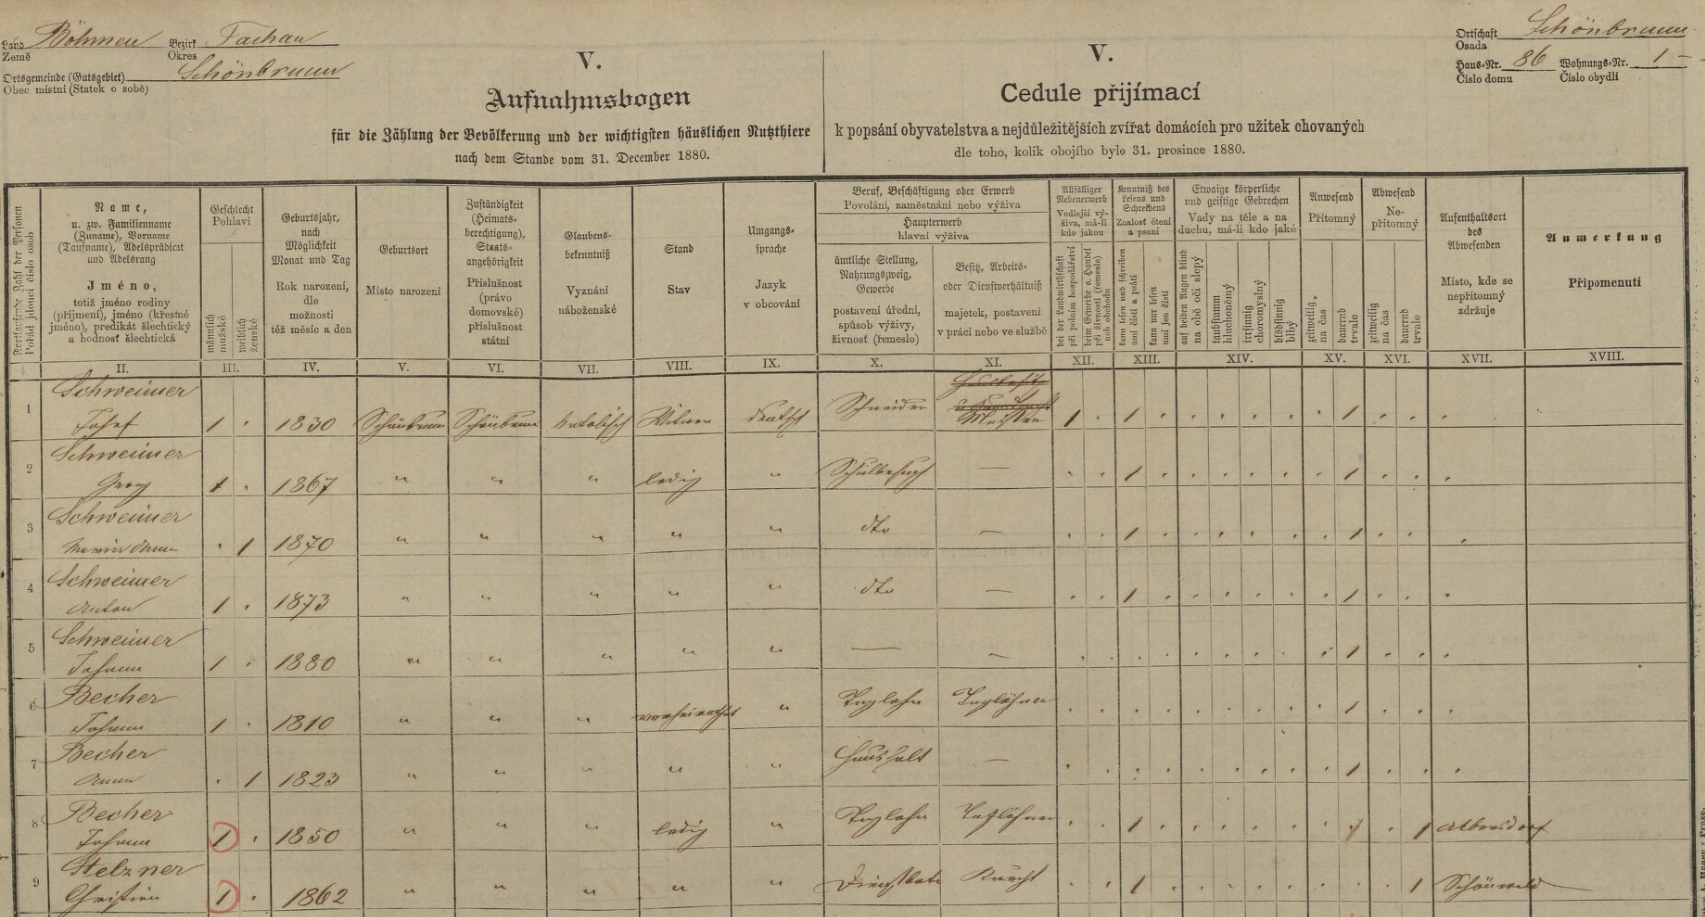 Land Böhmen Bezirk Tachau
Země Okres
Ortsgemeinde (Gutsgebiet) Schönbrunn
Obec místní (Statek o sobě)
V.
Aufnahmsbogen
für die Zählung der Bevölkerung und der wichtigsten häuslichen Nutzthiere
nach dem Stande vom 31. December 1880.
V.
Cedule přijímací
k popsání obyvatelstva a nejdůležitějších zvířat domácích pro užitek chovaných
dle toho, kolik obojího bylo 31. prosince 1880.
Ortschaft Schönbrunn
Osada
Haus-Nr. 86 Wohnungs-Nr. 1
Číslo domu Číslo obydlí
Fortlaufende Zahl der Personen
Pořád jdoucí číslo osob
Name,
u. zw. Familienname
(Zuname), Vorname
(Taufname), Adelsprädicat
und Adelsrang
Jméno,
totiž jméno rodiny
(příjmení), jméno (křestné
jméno), predikát šlechtický
a hodnost šlechtická
Geschlecht
Pohlaví
männlich
mužské
weiblich
ženské
Geburtsjahr,
nach
Möglichkeit
Monat und Tag
Rok narození,
dle
možnosti
též měsíc a den
Geburtsort
Místo narození
Zuständigkeit
(Heimats-
berechtigung),
Staats-
angehörigkeit
Příslušnost
(právo
domovské)
příslušnost
státní
Glaubens-
bekenntniß
Vyznání
náboženské
Stand
Stav
Umgangs-
sprache
Jazyk
v obcování
Beruf, Beschäftigung oder Erwerb
Povolání, zaměstnání nebo výživa
Haupterwerb
hlavní výživa
ämtliche Stellung,
Nahrungszweig,
Gewerbe
postavení úřední,
spůsob výživy,
živnosť (řemeslo)
Besitz, Arbeits-
oder Dienstverhältniß
majetek, postavení
v práci nebo ve službě
Allfälliger
Nebenerwerb
Vedlejší vý-
živa, má-li
kdo jakou
bei der Landwirthschaft
při polním hospodářství
beim Gewerbe o. Handel
při živnosti (řemesle)
neb obchodu
Kenntniß des
Lesens und
Schreibens
Znalost čtení
a psaní
kann lesen und schreiben
umí čísti a psáti
kann nur lesen
umí jen čísti
Etwaige körperliche
und geistige Gebrechen
Vady na těle a na
duchu, má-li kdo jaké
auf beiden Augen blind
na obě oči slepý
taubstumm
hluchoněmý
irrsinnig
choromyslný
blödsinnig
blbý
Anwesend
Přítomný
zeitweilig
na čas
dauernd
trvale
Abwesend
Ne-
přítomný
zeitweilig
na čas
dauernd
trvale
Aufenthaltsort
des
Abwesenden
Místo, kde se
nepřítomný
zdržuje
Anmerkung
Připomenutí
II. III. IV. V. VI. VII. VIII. IX. X. XI. XII. XIII. XIV. XV. XVI. XVII. XVIII.
Schweimer
1 Josef 1 . 1830 Schönbrunn Schönbrunn katolisch Witwer deutsch Schneider Meister 1 . 1 . . . . . . 1 . . .
Schweimer
2 Georg 1 . 1867 " " " ledig " Schulbesuch — . . 1 . . . . . . 1 . . .
Schweimer
3 Maria Anna . 1 1870 " " " " " dto — . . 1 . . . . . . 1 . . .
Schweimer
4 Anton 1 . 1873 " " " " " dto — . . 1 . . . . . . 1 . . .
Schweimer
5 Johann 1 . 1880 " " " " " — — . . . . . . . . . 1 . . .
Becher
6 Johann 1 . 1810 " " " verheirathet " Taglohn Taglöhner . . . . . . . . . 1 . . .
Becher
7 Anna . 1 1823 " " " " " Haushalt — . . . . . . . . . 1 . . .
Becher
8 Johann 1 . 1850 " " " ledig " Taglohn Taglöhner . . 1 . . . . . . . . 1 Albersdorf
Stelzner
9 Christian 1 . 1862 " " " " " Dienstbote Knecht . . 1 . . . . . . . . 1 Schönwald